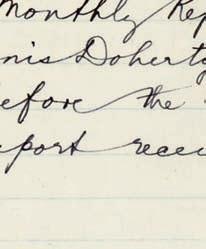 Monthly Rep
nis Doherty
efore the
eport recei